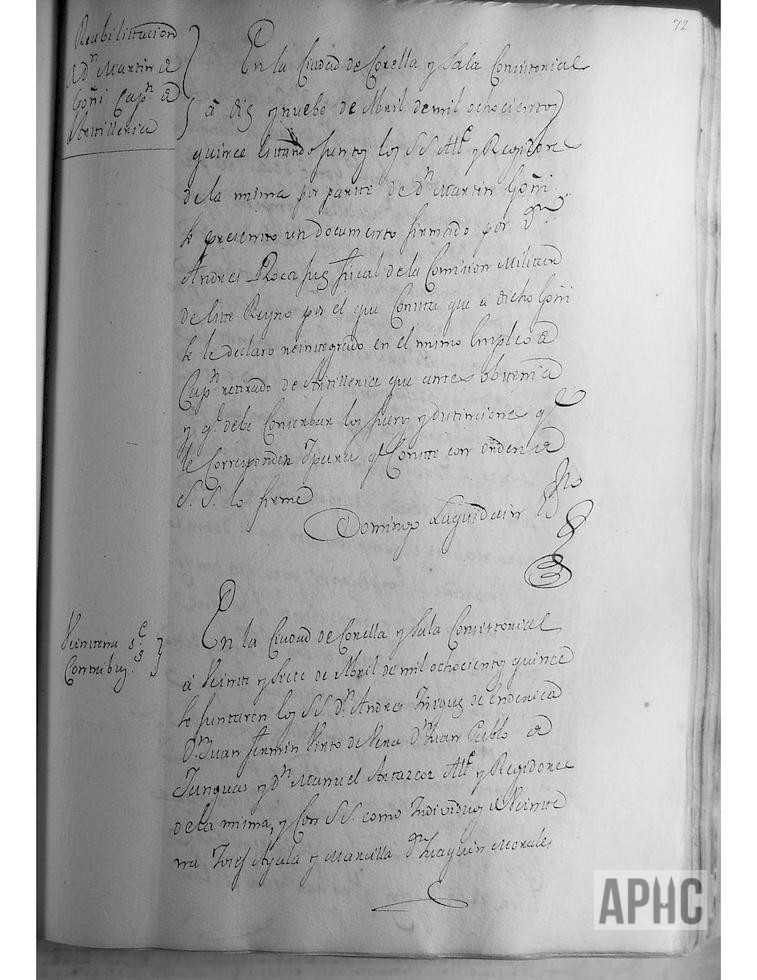 72
Reabilitacion
a Dn Martin de
Goñi Capn de
Artilleria
En la Ciudad de Corella y Sala Consistorial
a diez y nuebe de Abril de mil ochocientos
quince estando juntos los SS. Alte y Regidores
de la misma por parte de Dn Martin Goñi
se presento un documento firmado por Dn
Andres Roca Juez fiscal de la Comision Militar
de este Reyno por el que Consta que a dicho Goñi
se le declaro reintegrado en el mismo Empleo de
Capn retirado de Artilleria que antes obtenia
y qe debe Conserbar los fueros y distinciones qe
le Corresponden Ypara qe Conste con orden de
S.S. lo firme
Domingo Laquidain Sno
Veintena se
Contribuz.s
En la Ciudad de Corella y Sala Consistorial
a Veinte y Siete de Abril de mil ochocientos quince
se juntaron los SS. Dn Andres Yñiguez de
Dn Juan Fermin Virto de Vera Dn Juan Pablo de
Tunguas y Dn Manuel Alte y Regidores
de la misma, y Con SS. como Individuos de Veinte
na Josef Ayala y Mancilla Dn Joaquin Morales
APHC